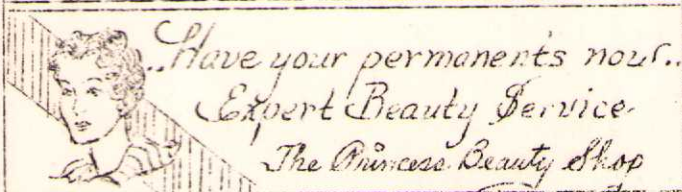 ..Have your permanents now..
Expert Beauty Service.
The Princess Beauty Shop